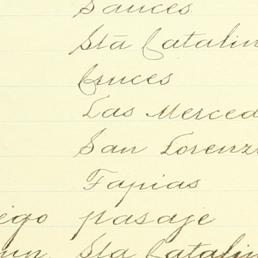 Sauces
Sta Catalin
Cruces
Las Merced
San Lorenz
Tapias
iego pasaje
Sta Catalin